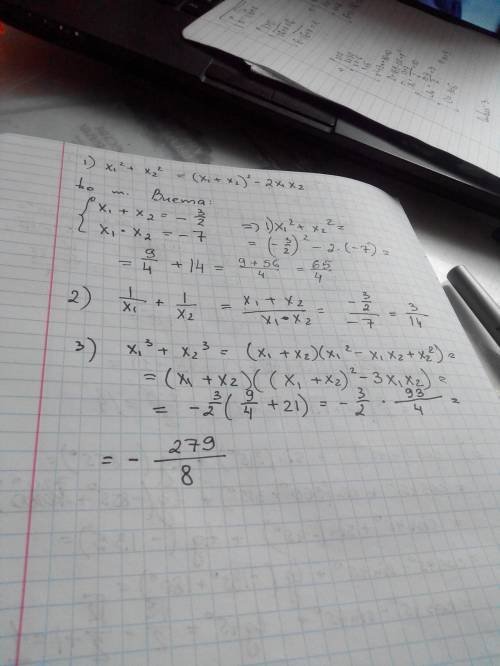 1) x₁² + x₂² = (x₁ + x₂)² - 2x₁x₂
по т. Виета:
{ x₁ + x₂ = - 3/2 => 1) x₁² + x₂² =
x₁ · x₂ = -7 = (- 3/2)² - 2 · (-7) =
= 9/4 + 14 = (9 + 56)/4 = 65/4
2) 1/x₁ + 1/x₂ = (x₁ + x₂)/(x₁ · x₂) = (- 3/2)/(-7) = 3/14
3) x₁³ + x₂³ = (x₁ + x₂)(x₁² - x₁x₂ + x₂²) =
= (x₁ + x₂)((x₁ + x₂)² - 3x₁x₂) =
= - 3/2 (9/4 + 21) = - 3/2 · 93/4 =
= - 279/8